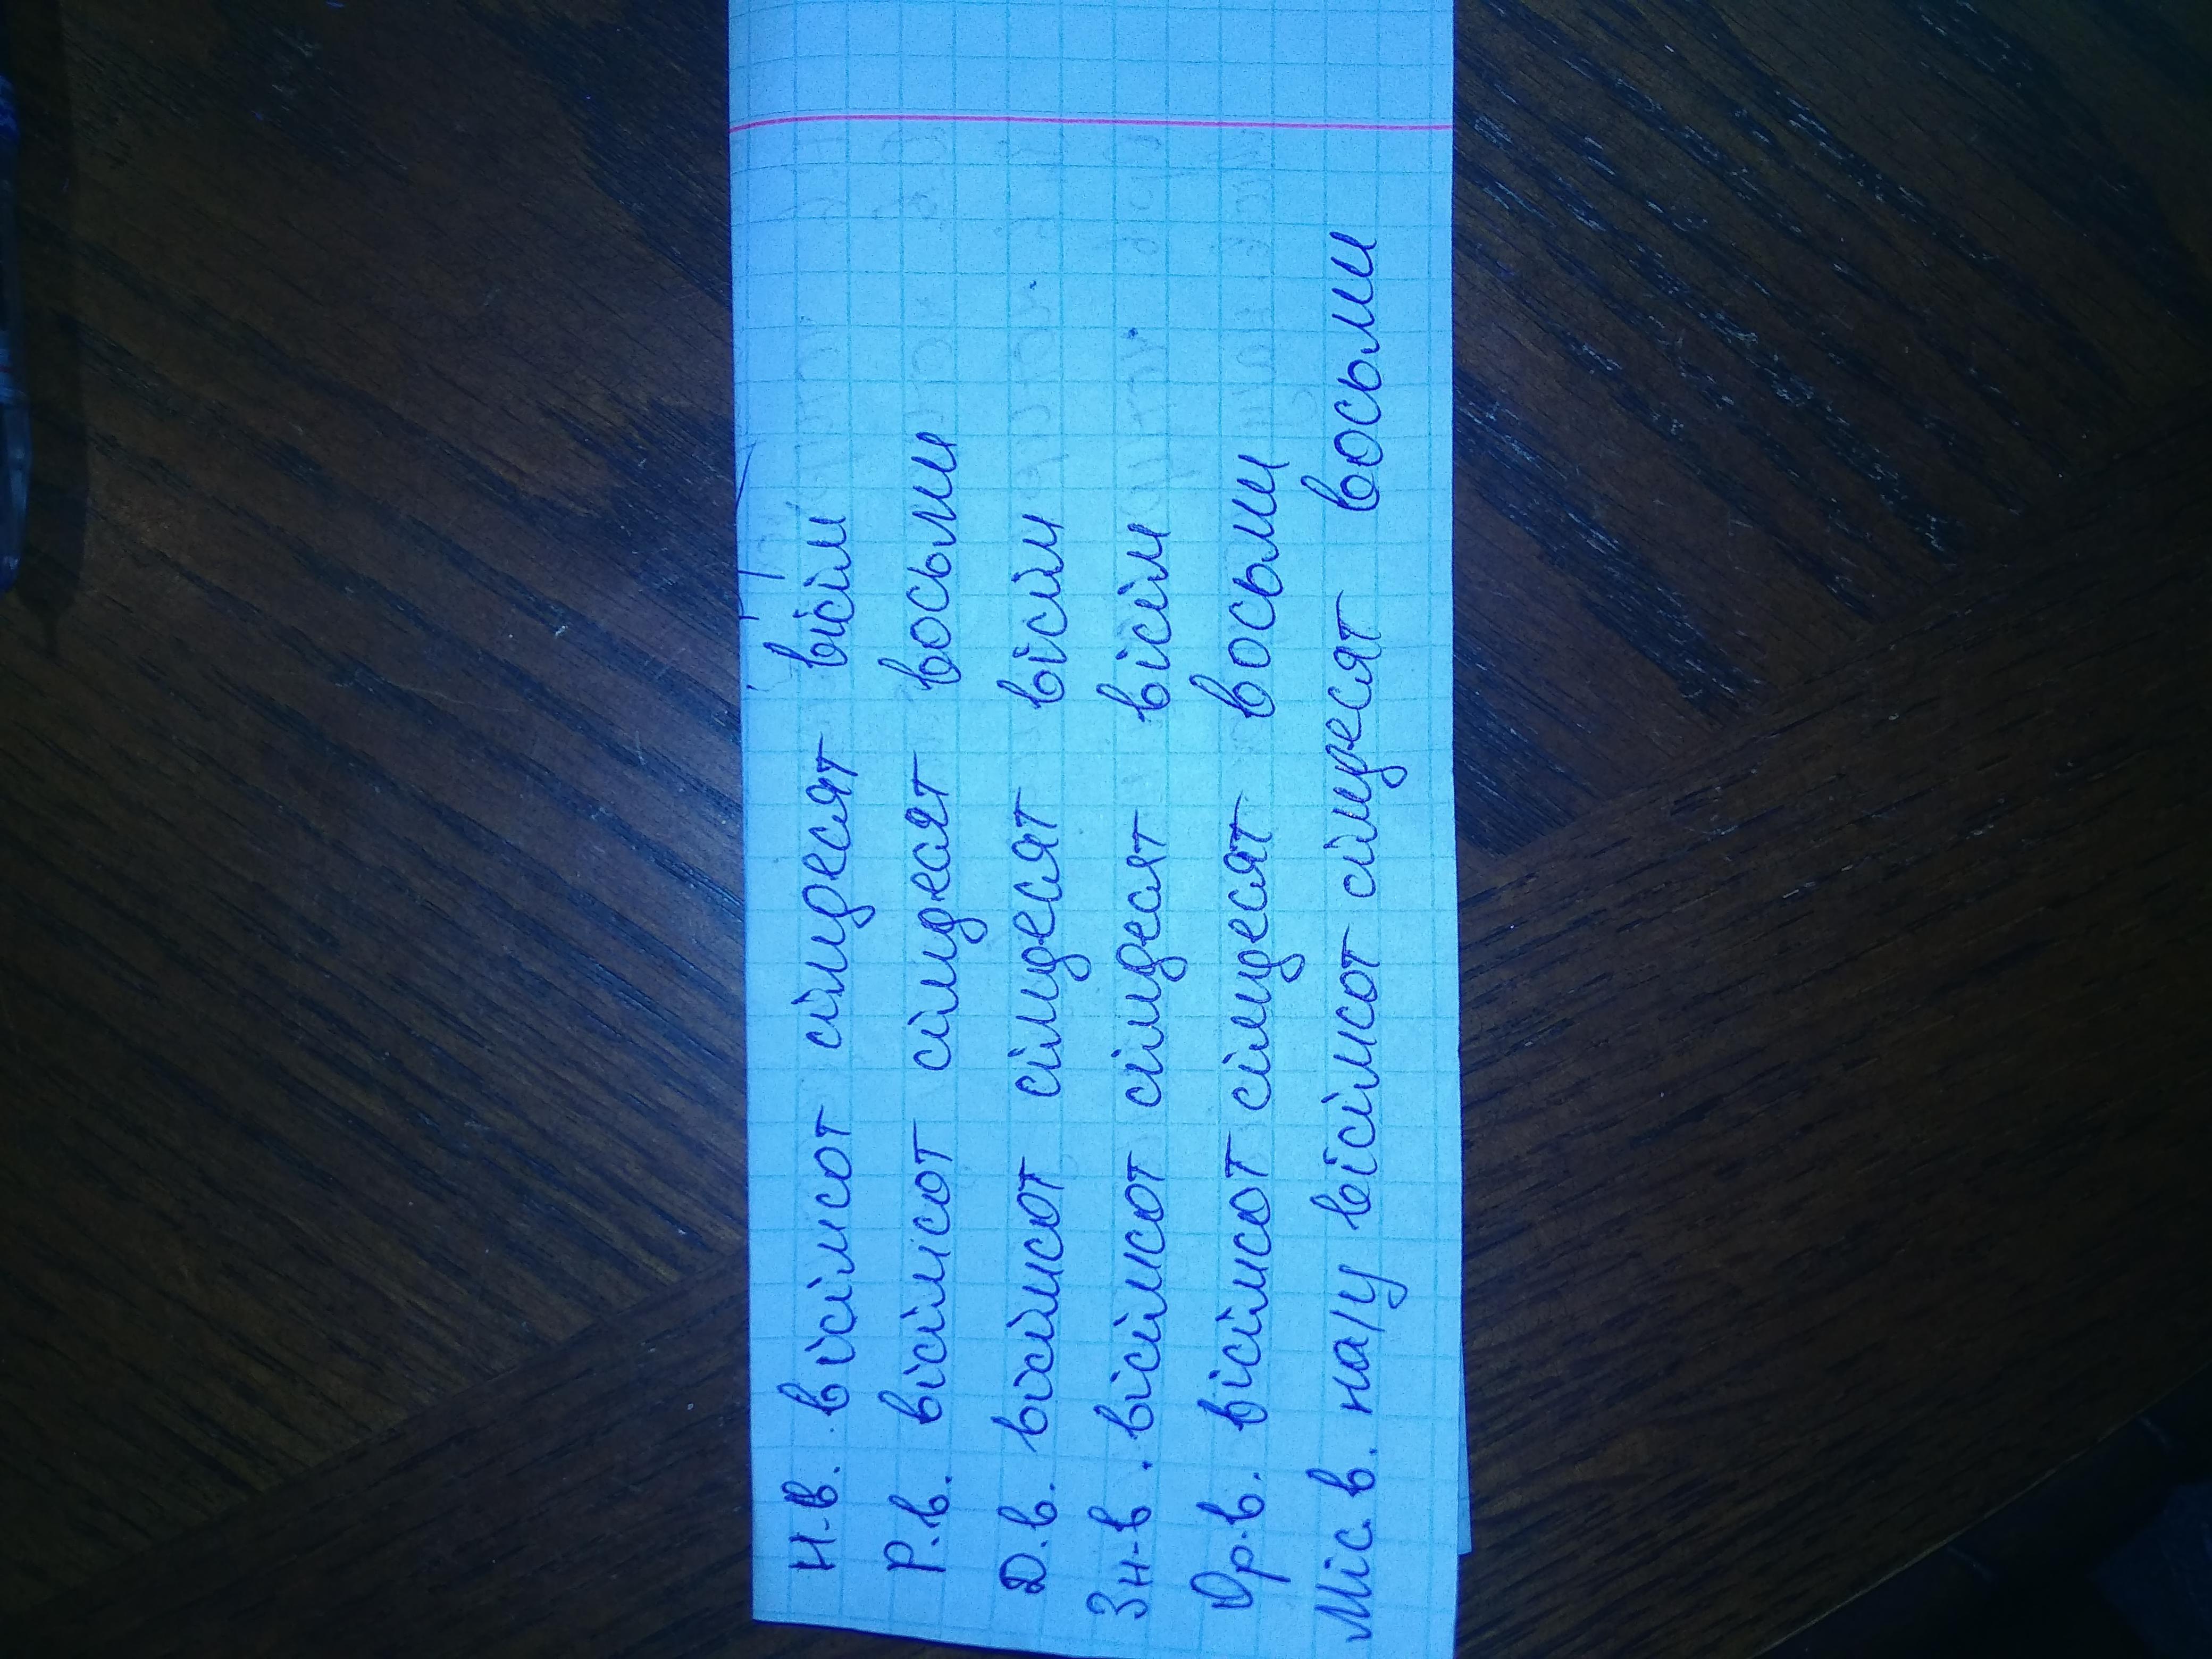 Н.в. вісімсот сімдесят вісім
Р.в. вісімсот сімдесят восьми
Д.в. вісімсот сімдесят вісім
Зн.в. вісімсот сімдесят вісім
Ор.в. вісімсот сімдесят восьми
Міс.в. на/у вісімсот сімдесят восьми